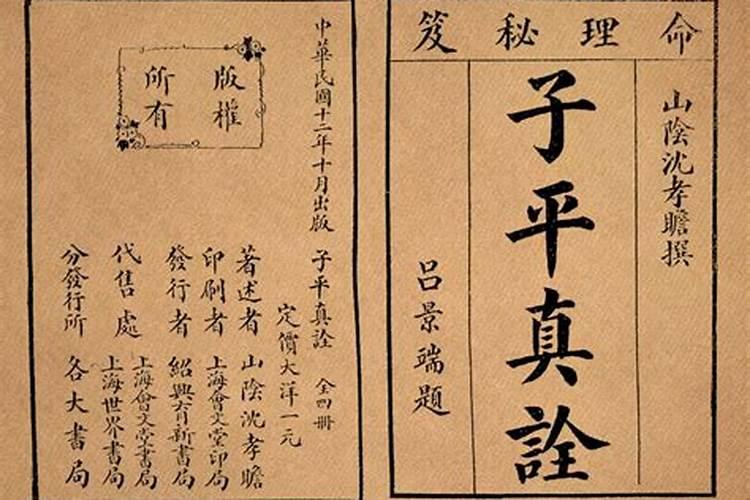 命理秘笈
山陰沈孝瞻撰
子平真詮
呂景端題
中華民國十二年十月出版 子平真詮 全四冊
定價大洋一元
版權
所有
著述者 山陰沈孝瞻
印刷者 上海會文堂印局
發行者 紹興育新書局
代售處 上海會文堂書局
上海世界書局
分發行所 各大書局